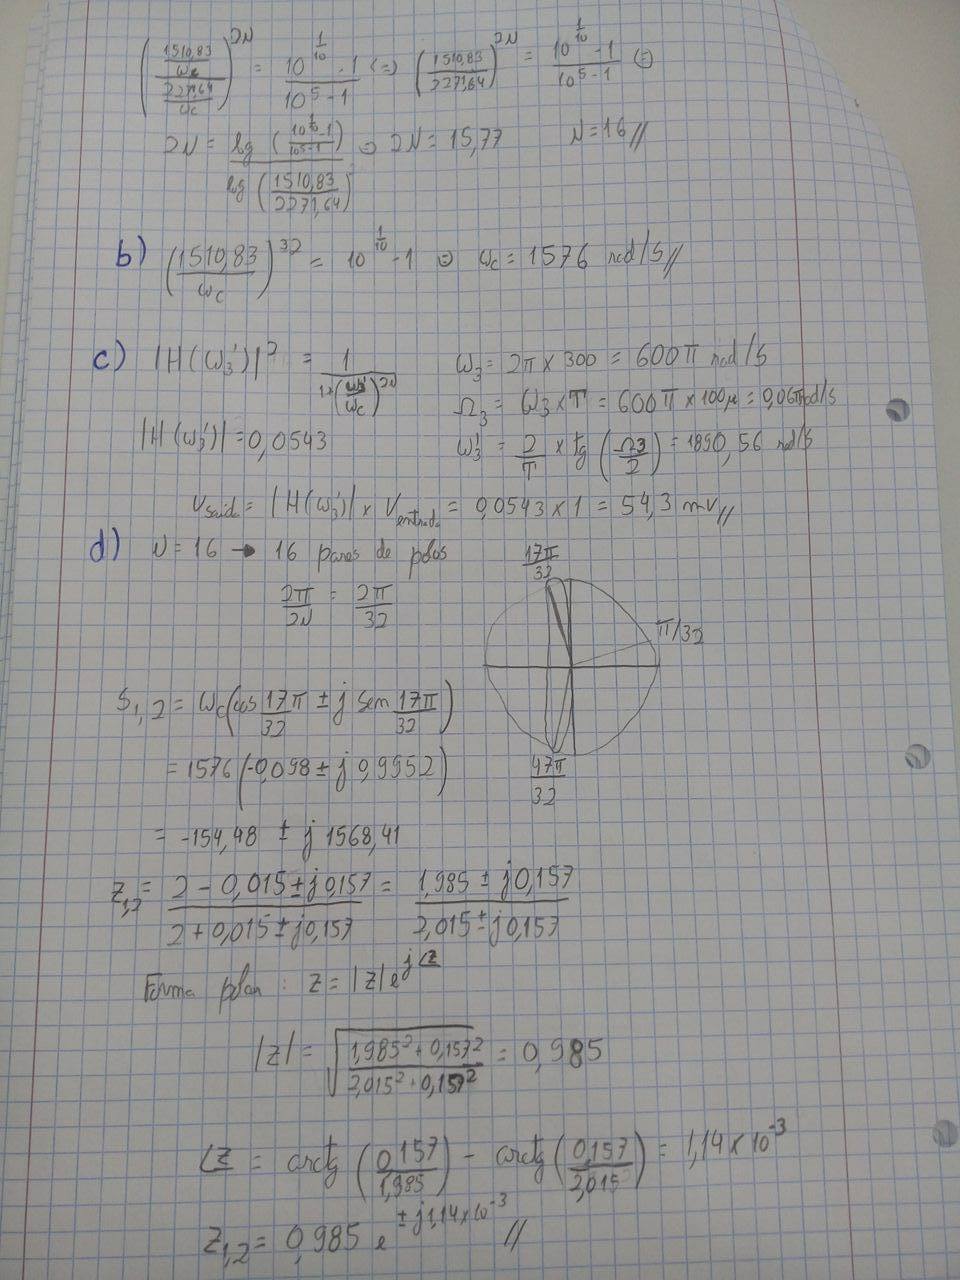 ((1510,83/ωc)/(2271,64/ωc))^2N = (10^(1/10) - 1)/(10^5 - 1) (=) (1510,83/2271,64)^2N = (10^(1/10) - 1)/(10^5 - 1) (=)
2N = log((10^(1/10) - 1)/(10^5 - 1))/log(1510,83/2271,64) (=) 2N = 15,77 N = 16//
b) (1510,83/ωc)^32 = 10^(1/10) - 1 (=) ωc = 1576 rad/s//
c) |H(ω3')|² = 1/(1+(ω3'/ωc)^2N) ω3 = 2π × 300 = 600π rad/s
Ω3 = ω3 × T = 600π × 100μ = 0,06π rad/s
|H(ω3')| = 0,0543 ω3' = 2/T × tg(Ω3/2) = 1890,56 rad/s
Vsaída = |H(ω3')| × Ventrada = 0,0543 × 1 = 54,3 mV//
d) N = 16 → 16 pares de polos 17π/32
2π/2N = 2π/32
π/32
S1,2 = ωc(cos 17π/32 ± j sen 17π/32)
= 1576(-0,098 ± j 0,9952)
47π/32
= -154,48 ± j 1568,41
Z1,2 = (2 - 0,015 ± j0,157)/(2 + 0,015 ± j0,157) = (1,985 ± j0,157)/(2,015 ± j0,157)
Forma polar : Z = |Z| e^j∠Z
|Z| = √((1,985² + 0,157²)/(2,015² + 0,157²)) = 0,985
∠Z = arctg(0,157/1,985) - arctg(0,157/2,015) = 1,14 × 10^-3
Z1,2 = 0,985 e^(± j1,14×10^-3) //